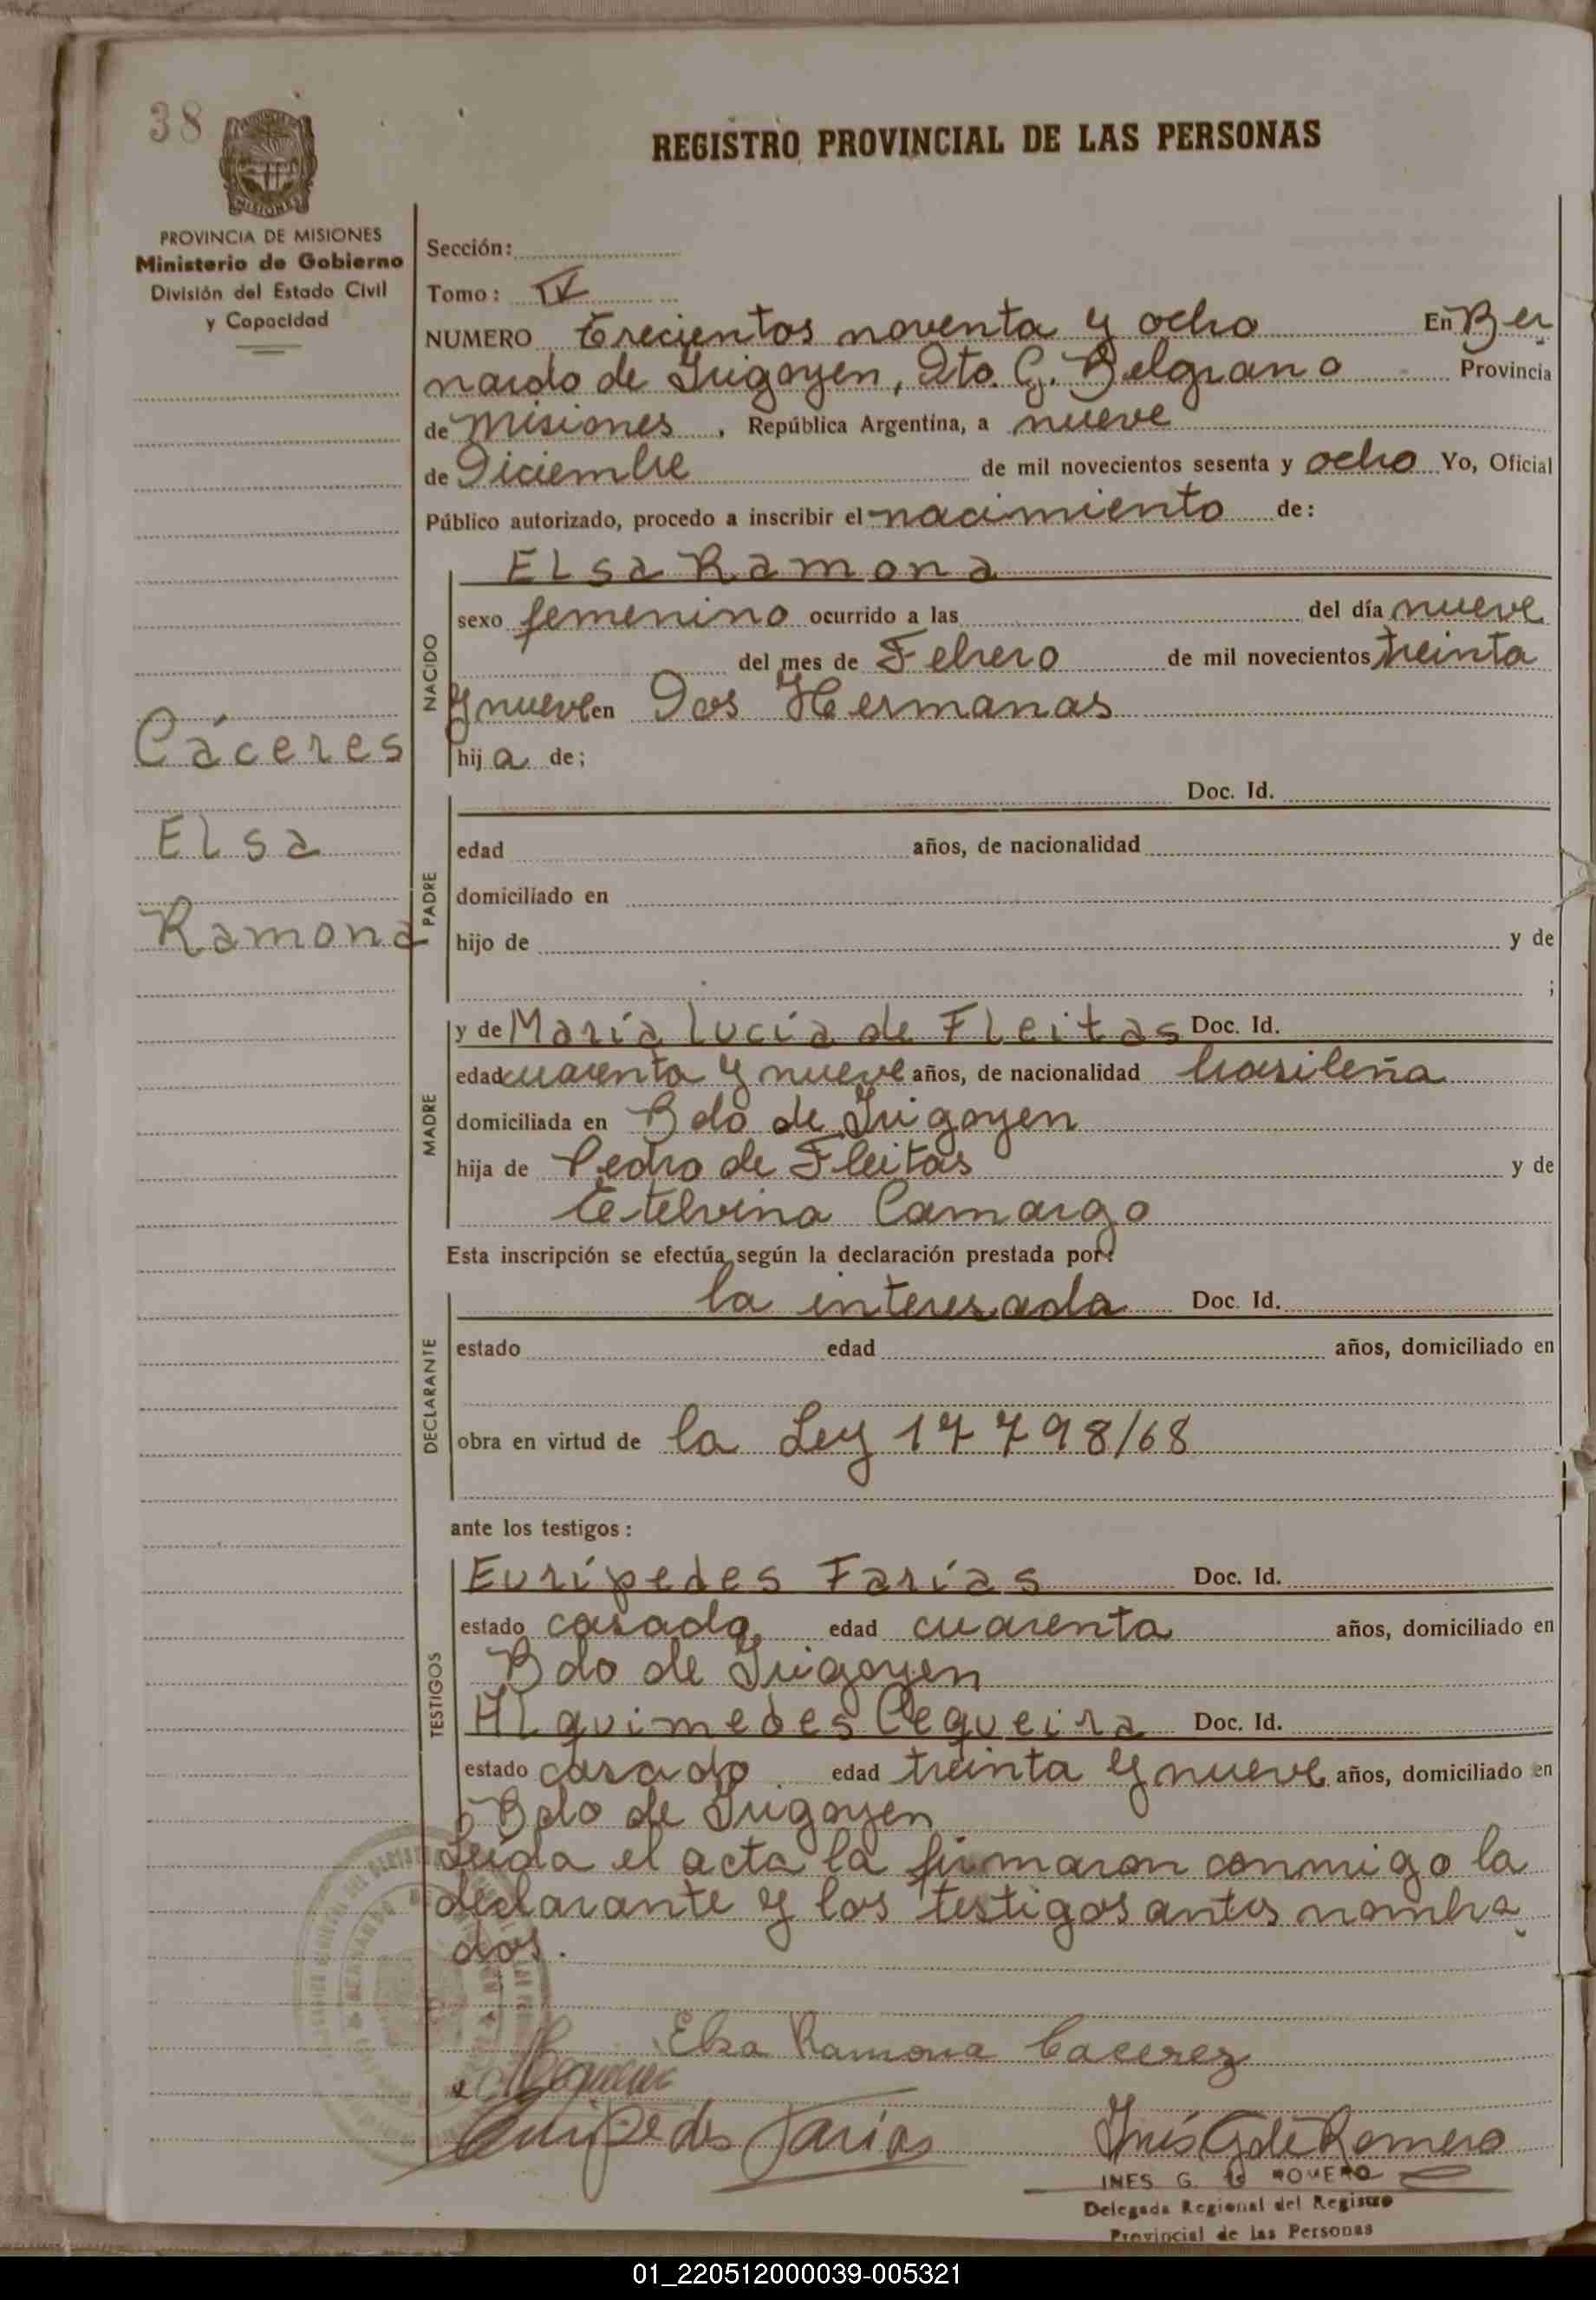 38
REGISTRO PROVINCIAL DE LAS PERSONAS
MISIONES
PROVINCIA DE MISIONES
Ministerio de Gobierno
División del Estado Civil
y Capacidad
Sección:
Tomo: IV
NUMERO Trecientos noventa y ocho En Ber
nardo de Irigoyen, Dto. G. Belgrano Provincia
de Misiones, República Argentina, a nueve
de Diciembre de mil novecientos sesenta y ocho Yo, Oficial
Público autorizado, procedo a inscribir el nacimiento de:
Elsa Ramona
NACIDO
sexo femenino ocurrido a las del día nueve
del mes de Febrero de mil novecientos treinta
y nueve en Dos Hermanas
hija de;
Cáceres
Elsa
Ramona
PADRE
Doc. Id.
edad años, de nacionalidad
domiciliado en
hijo de y de
;
MADRE
y de María Lucía de Fleitas Doc. Id.
edad cuarenta y nueve años, de nacionalidad brasileña
domiciliada en Bdo de Irigoyen
hija de Pedro de Fleitas y de
Etelvina Camargo
Esta inscripción se efectúa según la declaración prestada por:
DECLARANTE
la interesada Doc. Id.
estado edad años, domiciliado en
obra en virtud de la Ley 17798/68
ante los testigos:
TESTIGOS
Eurípedes Farías Doc. Id.
estado casado edad cuarenta años, domiciliado en
Bdo de Irigoyen
Alquimedes Cequeira Doc. Id.
estado casado edad treinta y nueve años, domiciliado en
Bdo de Irigoyen
Leída el acta la firmaron conmigo la
declarante y los testigos antes nombra
dos.
Elsa Ramona Cacerez
Euripedes Farias
Inés G de Romero
INES G. de ROMERO
Delegada Regional del Registro
Provincial de las Personas
01_220512000039-005321